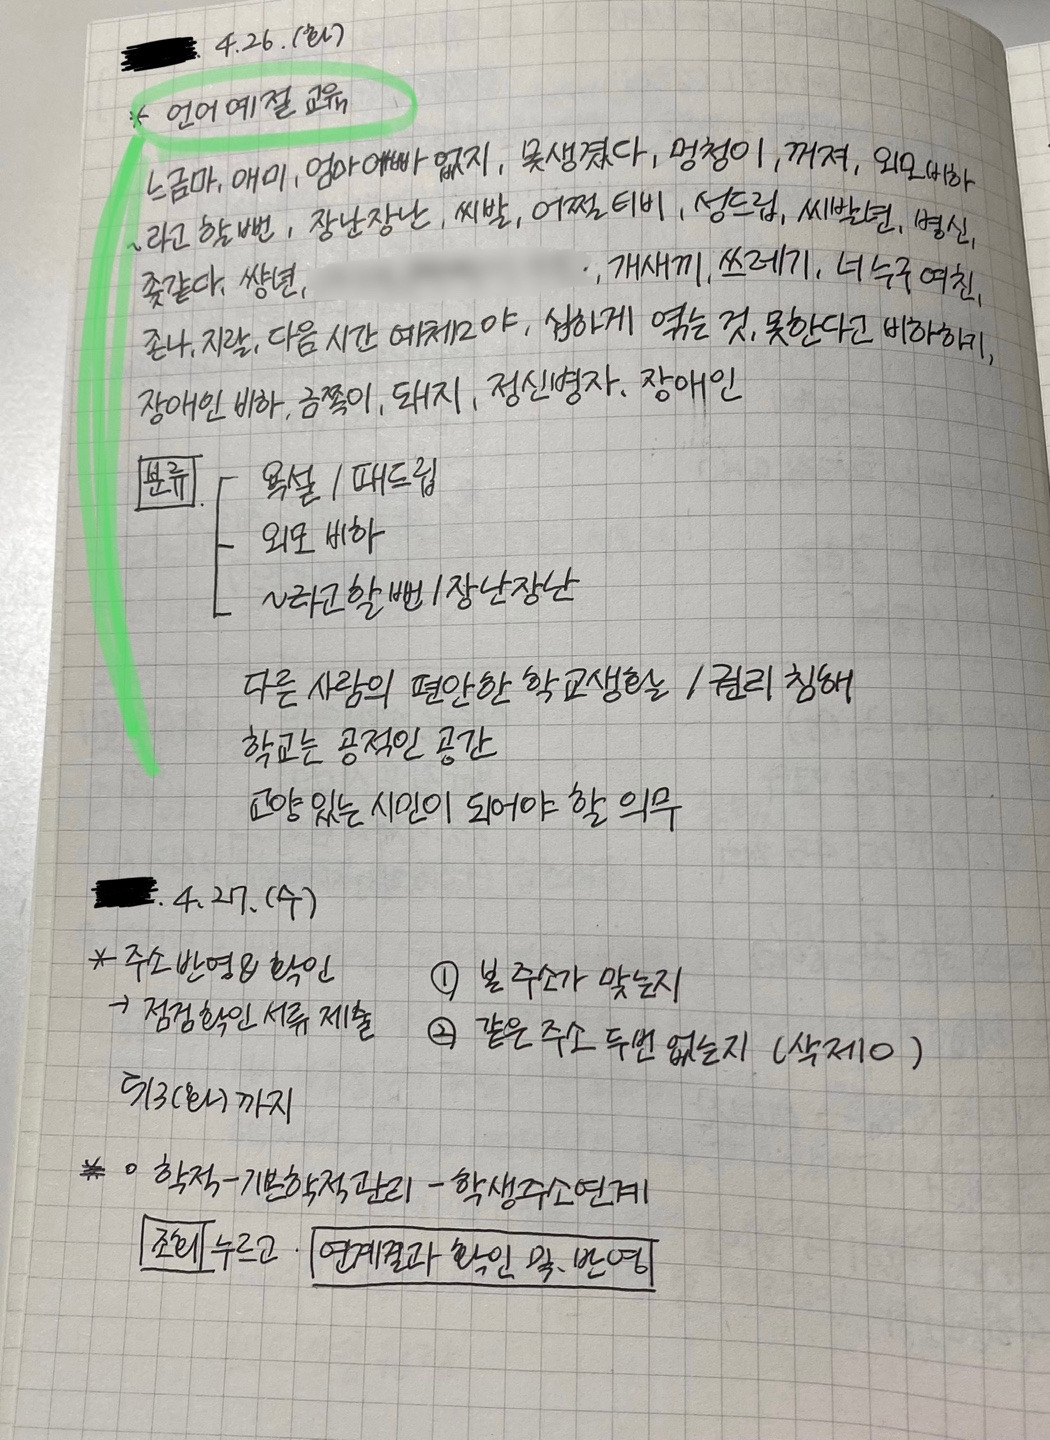 4.26.(화)
* 언어예절 교육
느금마, 애미, 엄마애빠 없지, 못생겼다, 멍청이, 꺼져, 외모비하
~라고 할뻔, 장난장난, 씨발, 어쩔티비, 성드립, 씨발년, 병신,
좆같다, 썅년, 개새끼, 쓰레기, 너 누구 여친,
존나, 지랄, 다음 시간 예체모야, 심하게 엮는 것, 못한다고 비하하기,
장애인 비하, 금쪽이, 돼지, 정신병자, 장애인
분류
욕설 / 패드립
외모 비하
~라고할뻔 / 장난장난
다른 사람의 편안한 학교생활 / 권리 침해
학교는 공적인 공간
교양 있는 시민이 되어야 할 의무
4.27.(수)
* 주소반영 & 확인
→ 점검확인 서류 제출
① 본 주소가 맞는지
② 같은 주소 두번 없는지 (삭제O)
5/3(화)까지
* ㅇ 학적-기본학적관리-학생주소연계
조회 누르고. 연계결과 확인 및 반영